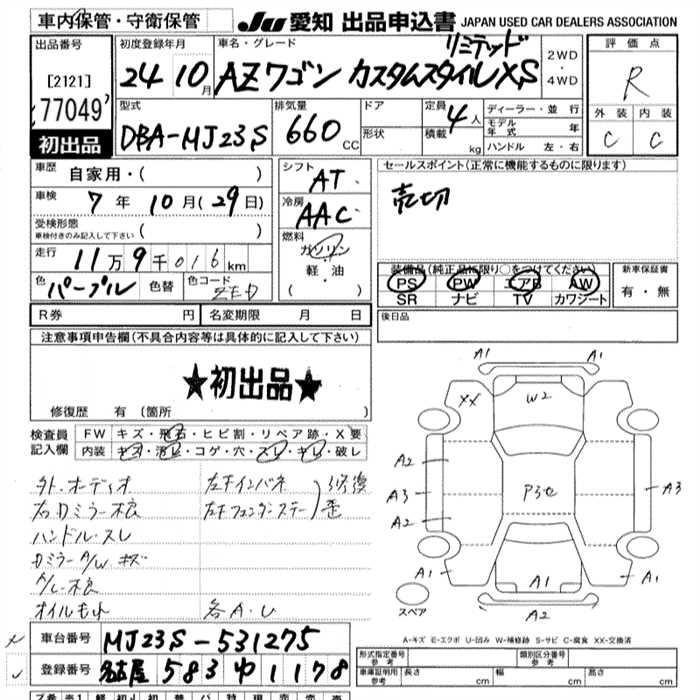 車内保管・守衛保管
JU 愛知 出品申込書 JAPAN USED CAR DEALERS ASSOCIATION
出品番号
[2121]
77049
初出品
初度登録年月
24 10月
車名・グレード
リミテッド
AZワゴン カスタムスタイルXS
2WD
・
4WD
評価点
R
外装 内装
C C
型式
DBA-MJ23S
排気量
660 CC
ドア
形状
定員
4人
積載
kg
ディーラー・並行
モデル年式 年
ハンドル 左・右
車歴
自家用・( )
車検
7年 10月(29日)
受検形態
車検付きのみ記入して下さい ( )
走行
11万9千016km
色
パープル
色替
色コード
ZED
シフト
AT
冷房
AAC
燃料
ガソリン
・
軽・油
( )
セールスポイント(正常に機能するものに限ります)
売切
装備品(純正品に限り○をつけてください)
PS PW エアB AW
SR ナビ TV カワシート
新車保証書
有・無
後日品
R券 円 名変期限 月 日
注意事項申告欄(不具合内容等は具体的に記入して下さい)
★初出品★
修復歴 有 (箇所 )
検査員記入欄
FW キズ・飛石・ヒビ割・リペア跡・X要
内装 キズ・汚レ・コゲ・穴・スレ・キレ・破レ
外.オーディオ
右ドミラー不良
ハンドル・スレ
ドミラーA/W キズ
A/C不良
オイルもれ
左Fインパネ
左Fフェンダーステー
修復
歪
各A・U
A1 A1
XX W2
A2
A3 P3e A3
A2
A1 A1 A1
A2
スペア
A-キズ E-エクボ U-凹み W-補修跡 S-サビ C-腐食 XX-交換済
車台番号 MJ23S-531275
登録番号 名古屋 583 ワ 1178
形式指定番号 参考
類別区分番号 参考
車庫証明用 参考 長さ cm 幅 cm 高さ cm